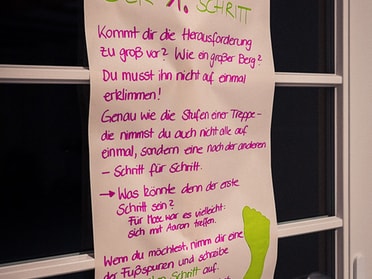 DER 1. SCHRITT
Kommt dir die Herausforderung
zu groß vor? Wie ein großer Berg?
Du musst ihn nicht auf einmal
erklimmen!
Genau wie die Stufen einer Treppe -
die nimmst du auch nicht alle auf
einmal, sondern eine nach der anderen
- Schritt für Schritt.
→ Was könnte denn der erste
Schritt sein?
Für Max war es vielleicht:
sich mit Aaron treffen.
Wenn du möchtest, nimm dir eine
der Fußspuren und schreibe
Schritt auf.